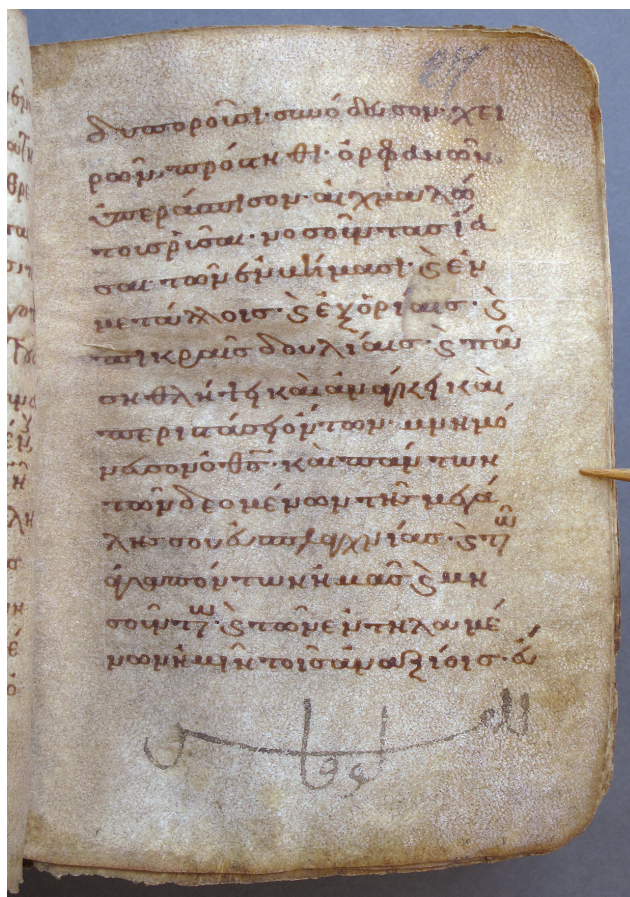 δυποροῦσι· συνόδευσον· χει
ρῶν· πρόστηθι· ὀρφανῶν·
ὑπεράσπισον· αἰχμαλώ
τοις ῥῖσαι· νοσοῦντας ἰά
σαι· τῶν ἐν βήμασι· ϗ ἐν
μετάλλοις· ϗ ἐξορίαις· ϗ
πικραῖς δουλίαις· ϗ πά
ση θλήψη καὶ ἀνάγκη καὶ
περιστάση ὄντων· μνημό
νευσον ὁ θς· καὶ πάντων
τῶν δεομένων τῆς μεγά
λης σου εὐσπλαχνίας· ϗ τῶν
ἀγαπόντων ἡμᾶς ϗ μη
σούντων· ϗ τῶν ἐντηλαμέ
νων ἡμῖν τοῖς ἀναξίοις· εὔ